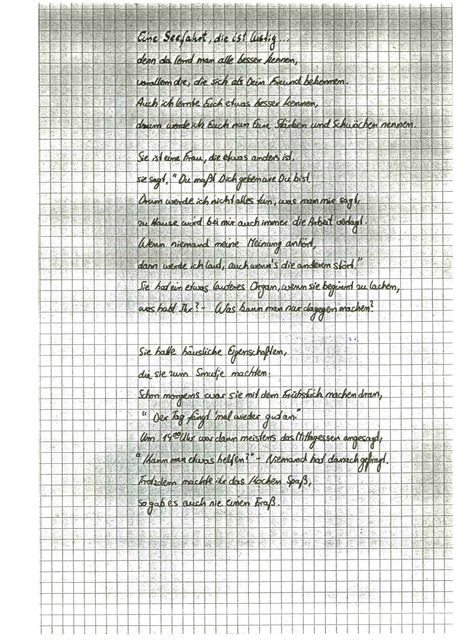 Eine Seefahrt, die ist lustig...
denn da lernd man alle besser kennen,
vorallem die, die sich als Dein Freund bekennen.
Auch ich lernte Euch etwas besser kennen,
drum werde ich Euch nun Eure Stärken und Schwächen nennen.
Sie ist eine Frau, die etwas anders ist,
sie sagt, "Du mußt Dich geben wie Du bist.
Drum werde ich nicht alles tun, was man mir sagt,
zu Hause wird bei mir auch immer die Arbeit vertagt.
Wenn niemand meine Meinung anhört,
dann werde ich laut, auch wenn's die anderen stört."
Sie hat ein etwas lauteres Organ, wenn sie beginnt zu lachen,
was habt Ihr? - Was kann man nur dagegen machen?
Sie hatte häusliche Eigenschaften,
die sie zum Smutje machten.
Schon morgens war sie mit dem Frühstück machen dran,
" Der Tag fängt 'mal wieder gut an."
Um 14⁰⁰ Uhr war dann meistens das Mittagessen angesagt,
"Kann man etwas helfen?" - Niemand hat danach gefragt.
Trotzdem machte ihr das Kochen Spaß,
so gab es auch nie einen Fraß.